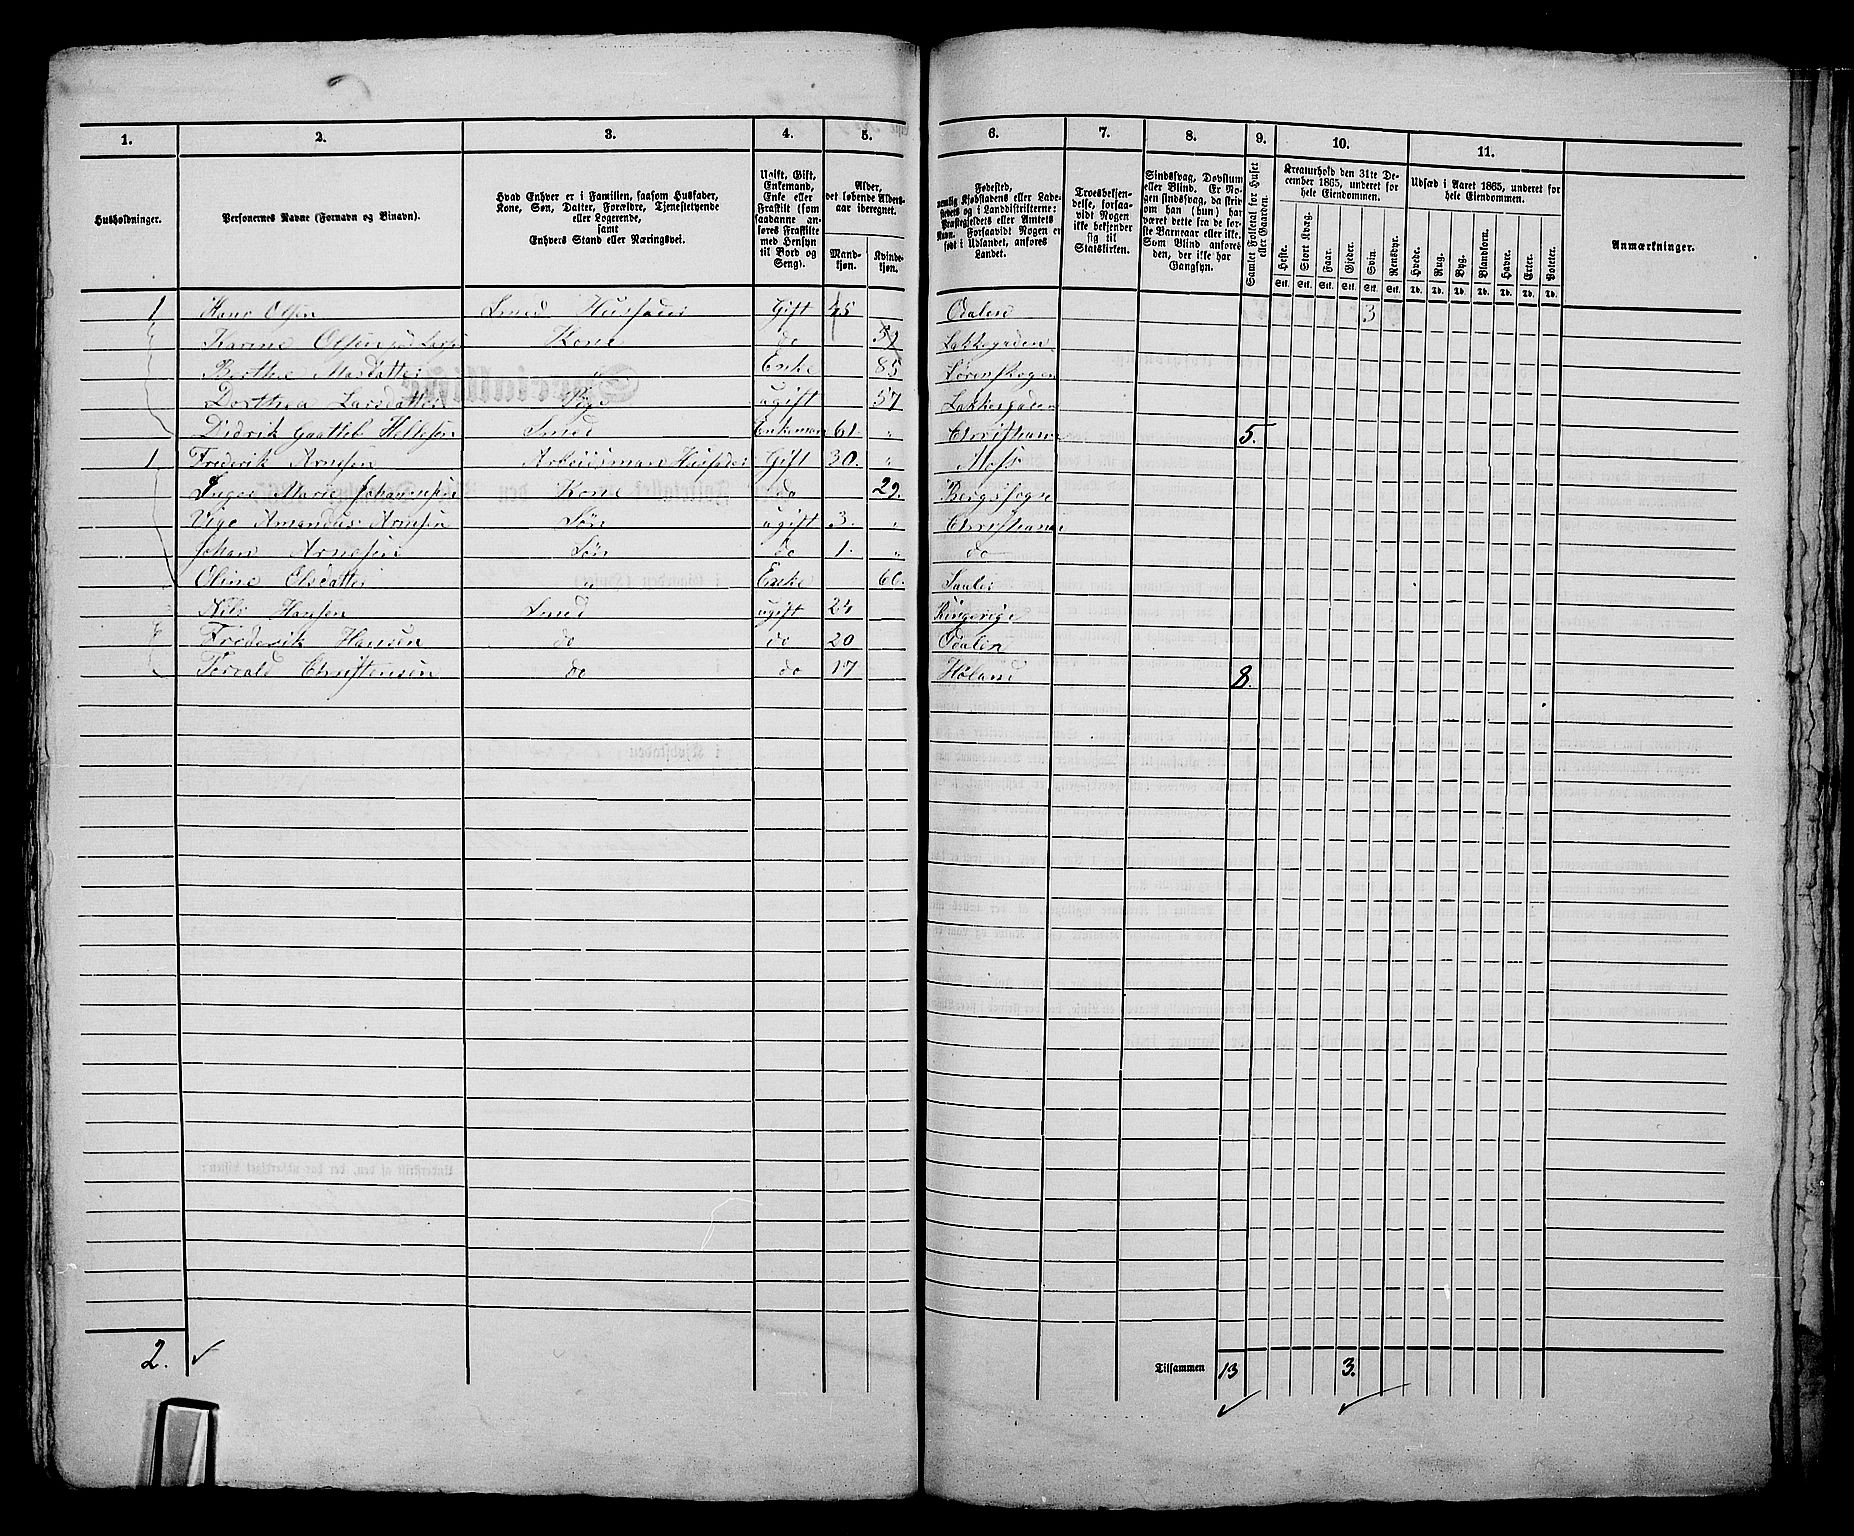 1. 2. 3. 4. 5. 6. 7. 8. 9. 10. 11.
Husholdninger.
Personernes Navne (Fornavn og Binavn).
Hvad Enhver er i Familien, saasom Husfader,
Kone, Søn, Datter, Forældre, Tjenestetyende
eller Logerende,
samt
Enhvers Stand eller Næringsvei.
Ugift, Gift,
Enkemand,
Enke eller
Fraskilt (som
saadanne an-
føres Fraskilte
med Hensyn
til Bord og
Seng).
Alder,
det løbende Alders-
aar iberegnet.
Mand-
kjøn.
Kvinde-
kjøn.
Fødested,
nemlig Kjøbstadens eller Lade-
stedets og i Landdistrikterne:
Præstegjeldets eller Amtets
Navn. Forsaavidt Nogen er
født i Udlandet, anføres
Landet.
Troesbekjen-
delse, forsaa-
vidt Nogen
ikke bekjender
sig til
Statskirken.
Sindssvag, Døvstum
eller Blind. Er No-
gen sindssvag, da skriv
om han (hun) har
været dette fra de før-
ste Barneaar eller ikke.
Som Blind anføres
den, der ikke har
Gangsyn.
Samlet Folketal for Huset
eller Gaarden.
Kreaturhold den 31te De-
cember 1865, underet for
hele Eiendommen.
Heste. Stort Kvæg. Faar. Gjeder. Svin. Rensdyr.
Stk. Stk. Stk. Stk. Stk. Stk.
Udsæd i Aaret 1865, underet for
hele Eiendommen.
Hvede. Rug. Byg. Blandkorn. Havre. Erter. Poteter.
Td. Td. Td. Td. Td. Td. Td.
Anmærkninger.
1 Hans Olsen Smed Husfader Gift 45 Odalen 3
Karine Olsen Kone do Lakkegaden
Berthe Masdatter " Enke 85 Lørenskogen
Dorthea Larsdatter Pige ugift 57 Lakkegaden
Didrik Gottlieb Hellesen Smed Enkeman 61. " Christiania 5.
1 Frederik Arnesen Arbeidsman Husfader Gift 30. " Moss
Inger Marie Johannesen Kone do 29. Bergsogn
Vigo Amandus Arnesen Søn ugift 3. " Christiania
Johan Arnesen Søn do 1. " do
Oline Olsdatter " Enke 60.
Nils Hansen Smed ugift 24 Ringerige
Frederik Hansen do do 20 Odalen
Torvald Christensen do do 17 Høland 8.
2.
Tilsammen 13 3.